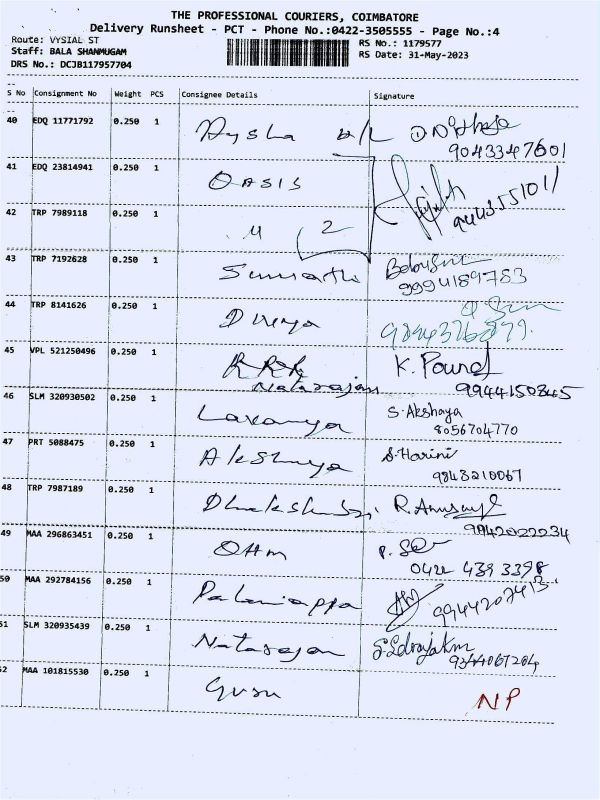 THE PROFESSIONAL COURIERS, COIMBATORE
Delivery Runsheet - PCT - Phone No.:0422-3505555 - Page No.:4
Route: VYSIAL ST
RS No.: 1179577
Staff: BALA SHANMUGAM
RS Date: 31-May-2023
DRS No.: DCJB117957704
S No Consignment No Weight PCS Consignee Details Signature
40 EDQ 11771792 0.250 1
9043347601
41 EDQ 23814941 0.250 1 OASIS
9443551011
42 TRP 7989118 0.250 1 2
43 TRP 7192628 0.250 1
9994189783
44 TRP 8141626 0.250 1 Divya
45 VPL 521250496 0.250 1 K.
Natarajan
46 SLM 320930502 0.250 1 Lavanya S. Akshaya
8056704770
47 PRT 5088475 0.250 1 Akshaya S. Harini
9843210067
48 TRP 7987189 0.250 1 R.
9842022234
49 MAA 296863451 0.250 1 OHM P.
0422 439 3398
50 MAA 292784156 0.250 1 Palaniappa
9944207413
51 SLM 320935439 0.250 1 Natarajan
9344067204
52 MAA 101815530 0.250 1 Guru NP